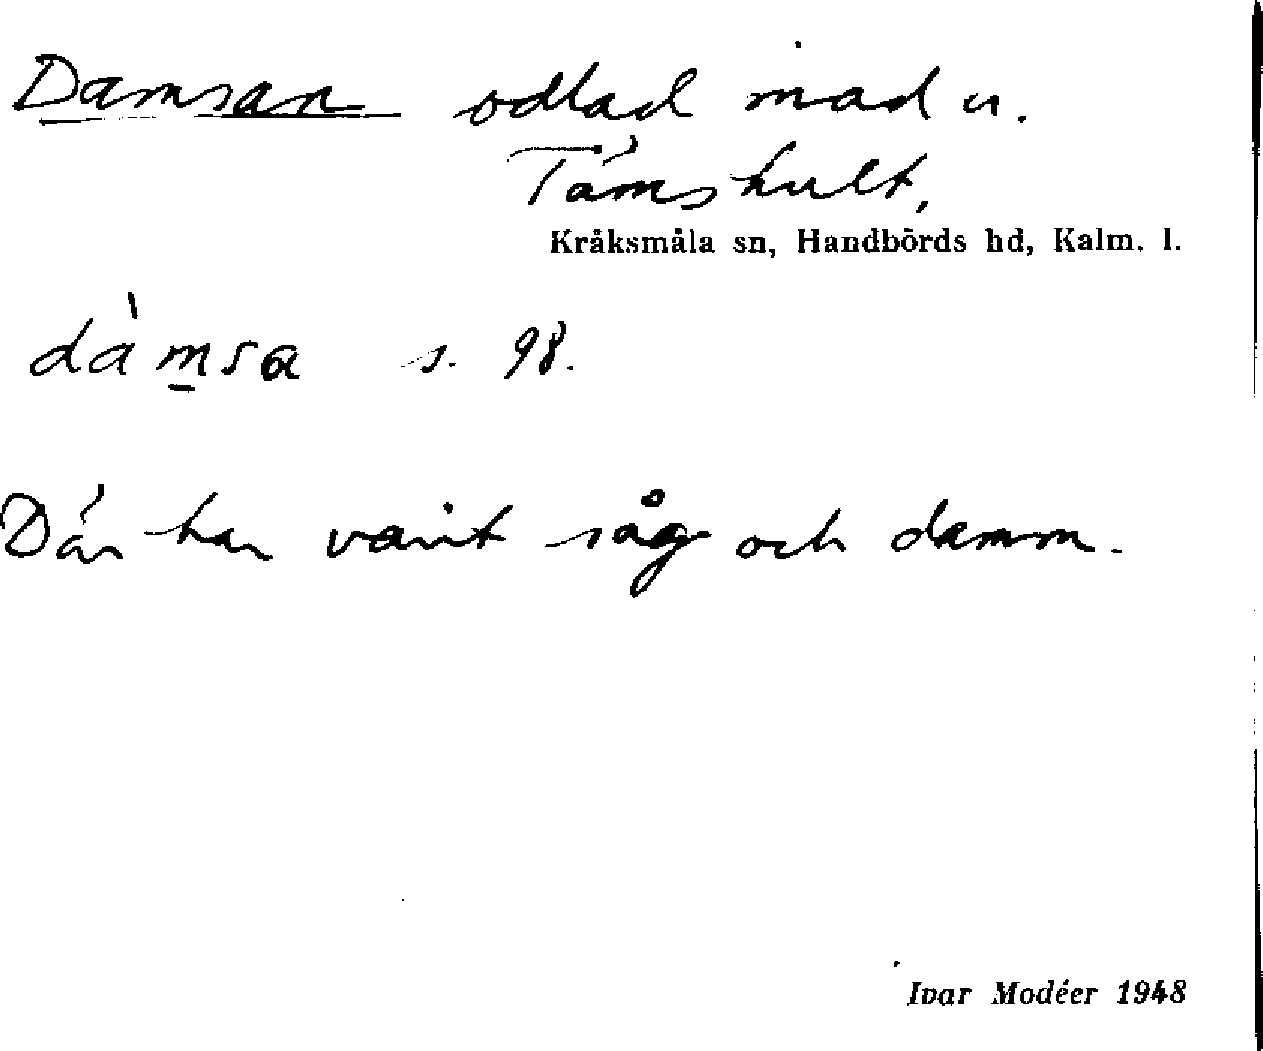 Damsan odlad mad u.
Tämshult,
Kråksmåla sn, Handbörds hd, Kalm. l.
dàm̲sa s. 98.
Där har varit såg och damm.
Ivar Modéer 1948